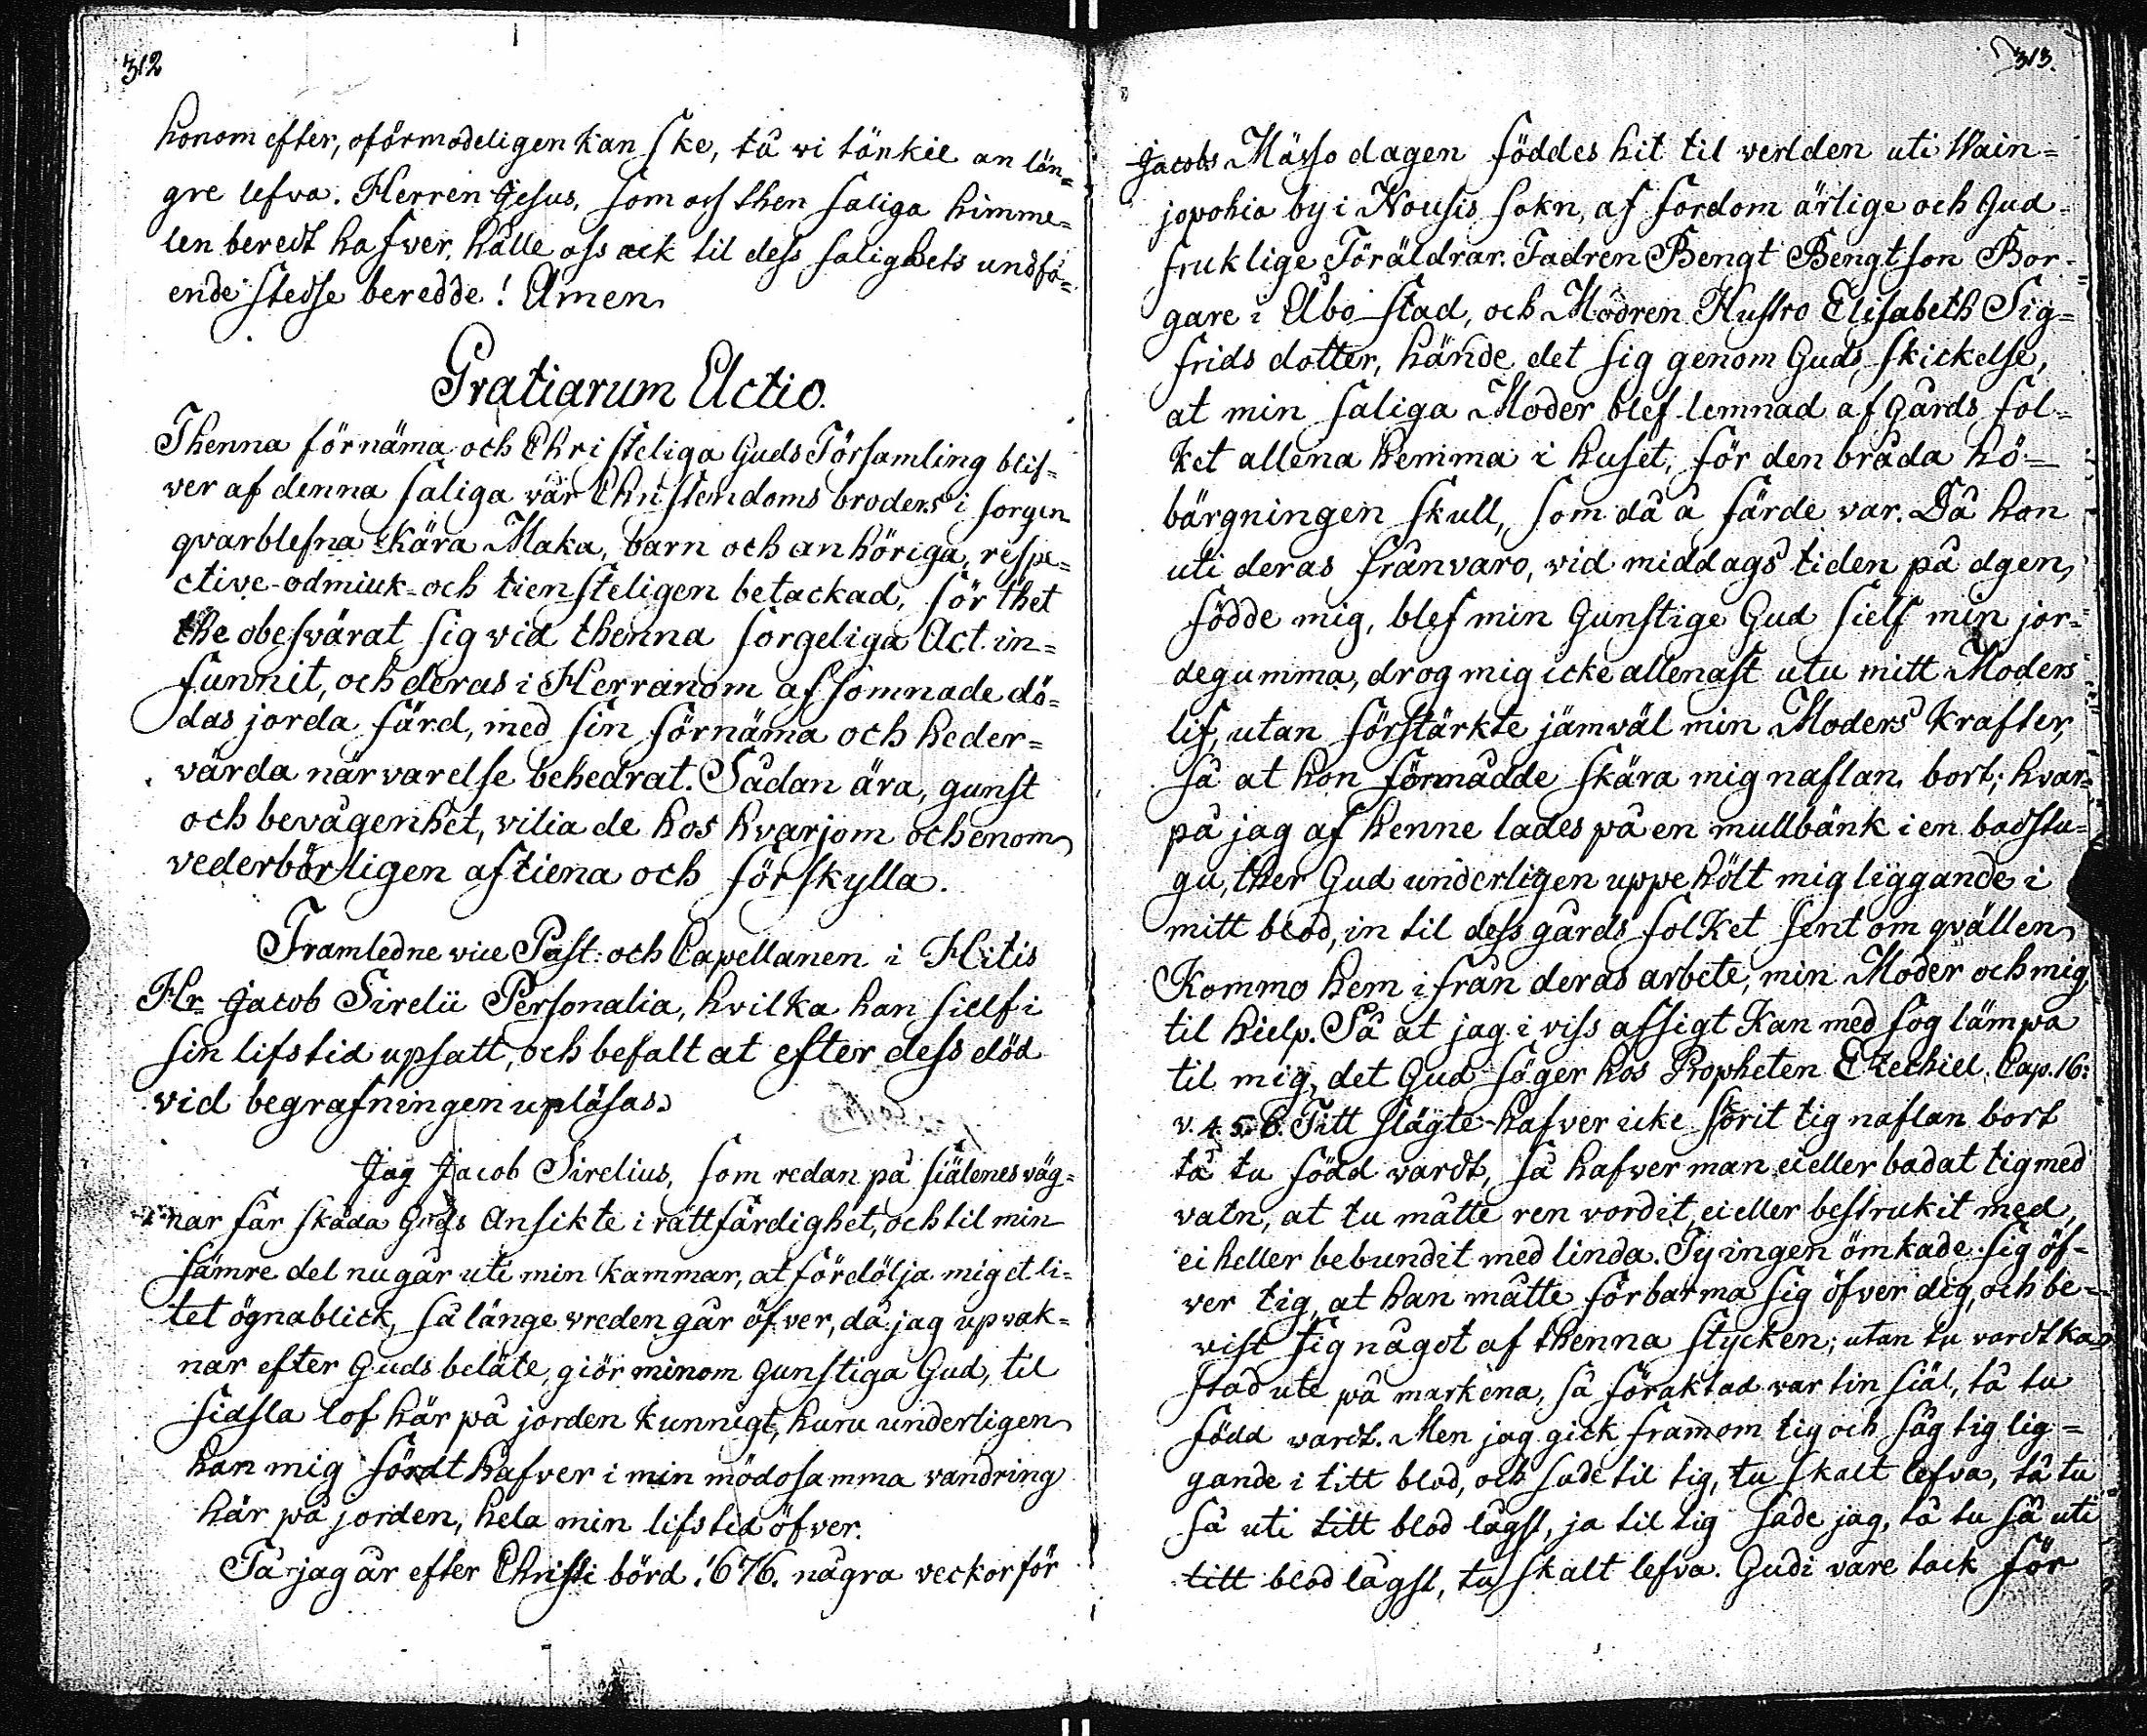 312
honom efter, oförmodeligen kan ske, tå vi tänkie an län=
gre lefva. Herren Jesus, som oss then saliga himme=
len beredt hafver, hålle oss ack til dess salighets undfå=
ende stedse beredde! Amen.
Gratiarum Actio.
Thenna förnäma och Christeliga Guds Församling blif=
ver af denna saliga vår Christendoms broders i sorgen
qvarblefna kära Maka, barn och anhöriga, respe=
ctive-ödmiuk- och tiensteligen betackad, för thet
the obesvärat sig vid thenna sorgeliga Act. in=
funnit, och deras i Herranom afsomnade dö=
das jorda färd, med sin förnäma och heder=
värda närvarelse behedrat. Sådan ära, gunst
och bevågenhet, vilia de hos hvarjom och enom
vederbörligen aftiena och förskylla.
Framledne vice Past: och Capellanen i Hitis
Hr Jacob Sirelii Personalia, hvilka han sielf i
sin lifstid upsatt, och befalt at efter dess död
vid begrafningen upläsas.
Jag Jacob Sirelius, som redan på siälenes väg=
nar får skåda Guds Ansikte i rättfärdighet, och til min
sämre del nu går uti min kammar, at fördölja mig et li=
tet ögnablick, så länge vreden går öfver, då jag upvak=
nar efter Guds beläte, giör minom gunstiga Gud, til
sidsta lof här på jorden kunnigt, huru underligen
han mig fördt hafver i min mödosamma vandring
här på jorden, hela min lifstid öfver.
Tå jag år efter Christi börd 1676. några veckor för
313.
Jacobs Mässo dagen föddes hit til verlden uti Wain=
jopohia by i Nousis sokn, af fordom ärlige och Gud=
fruklige Föräldrar. Fadren Bengt Bengtson Bor=
gare i Åbo stad, och Modren Hustro Elisabeth Sig=
frids dotter, hände det sig genom Guds skickelse,
at min saliga Moder blef lemnad af gårds fol=
ket allena hemma i huset, för den bråda hö=
bärgningen skull, som då å färde var. Då hon
uti deras frånvaro, vid middags tiden på dgen,
födde mig, blef min Gunstige Gud sielf min jor=
degumma, drog mig icke allenast utu mitt Moders
lif, utan förstärkte jämväl min Moders krafter,
så at hon förmådde skära mig naflan bort; hvar=
på jag af henne lades på en mullbänk i en badstu=
gu, ther Gud underligen uppehölt mig liggande i
mitt blod, in til dess gårds folket sent om qvällen
Kommo hem ifrån deras arbete, min Moder och mig
til hielp. Så at jag i viss afsigt kan med fog lämpa
til mig, det Gud säger hos Propheten Ezechiel Cap. 16:
v. 4. 5. 6. Titt slägte hafver icke skorit tig naflan bort
tå tu född vardt, så hafver man ei eller badat tig med
vatn, at tu måtte ren vordit, ei eller bestrukit med,
ei heller bebundit med linda. Ty ingen ömkade sig öf=
ver tig, at han måtte förbarma sig öfver dig, och be=
vist tig något af thenna stycken; utan tu vardt ka=
stad ute på markena, så föraktad var tin siäl, tå tu
född vardt. Men jag gick framom tig och såg tig lig=
gande i titt blod, och sade til tig, tu skalt lefva, tå tu
så uti titt blod lågst, ja til tig sade jag, tå tu så uti
titt blod lågst, tu skalt lefva. Gudi vare tack för